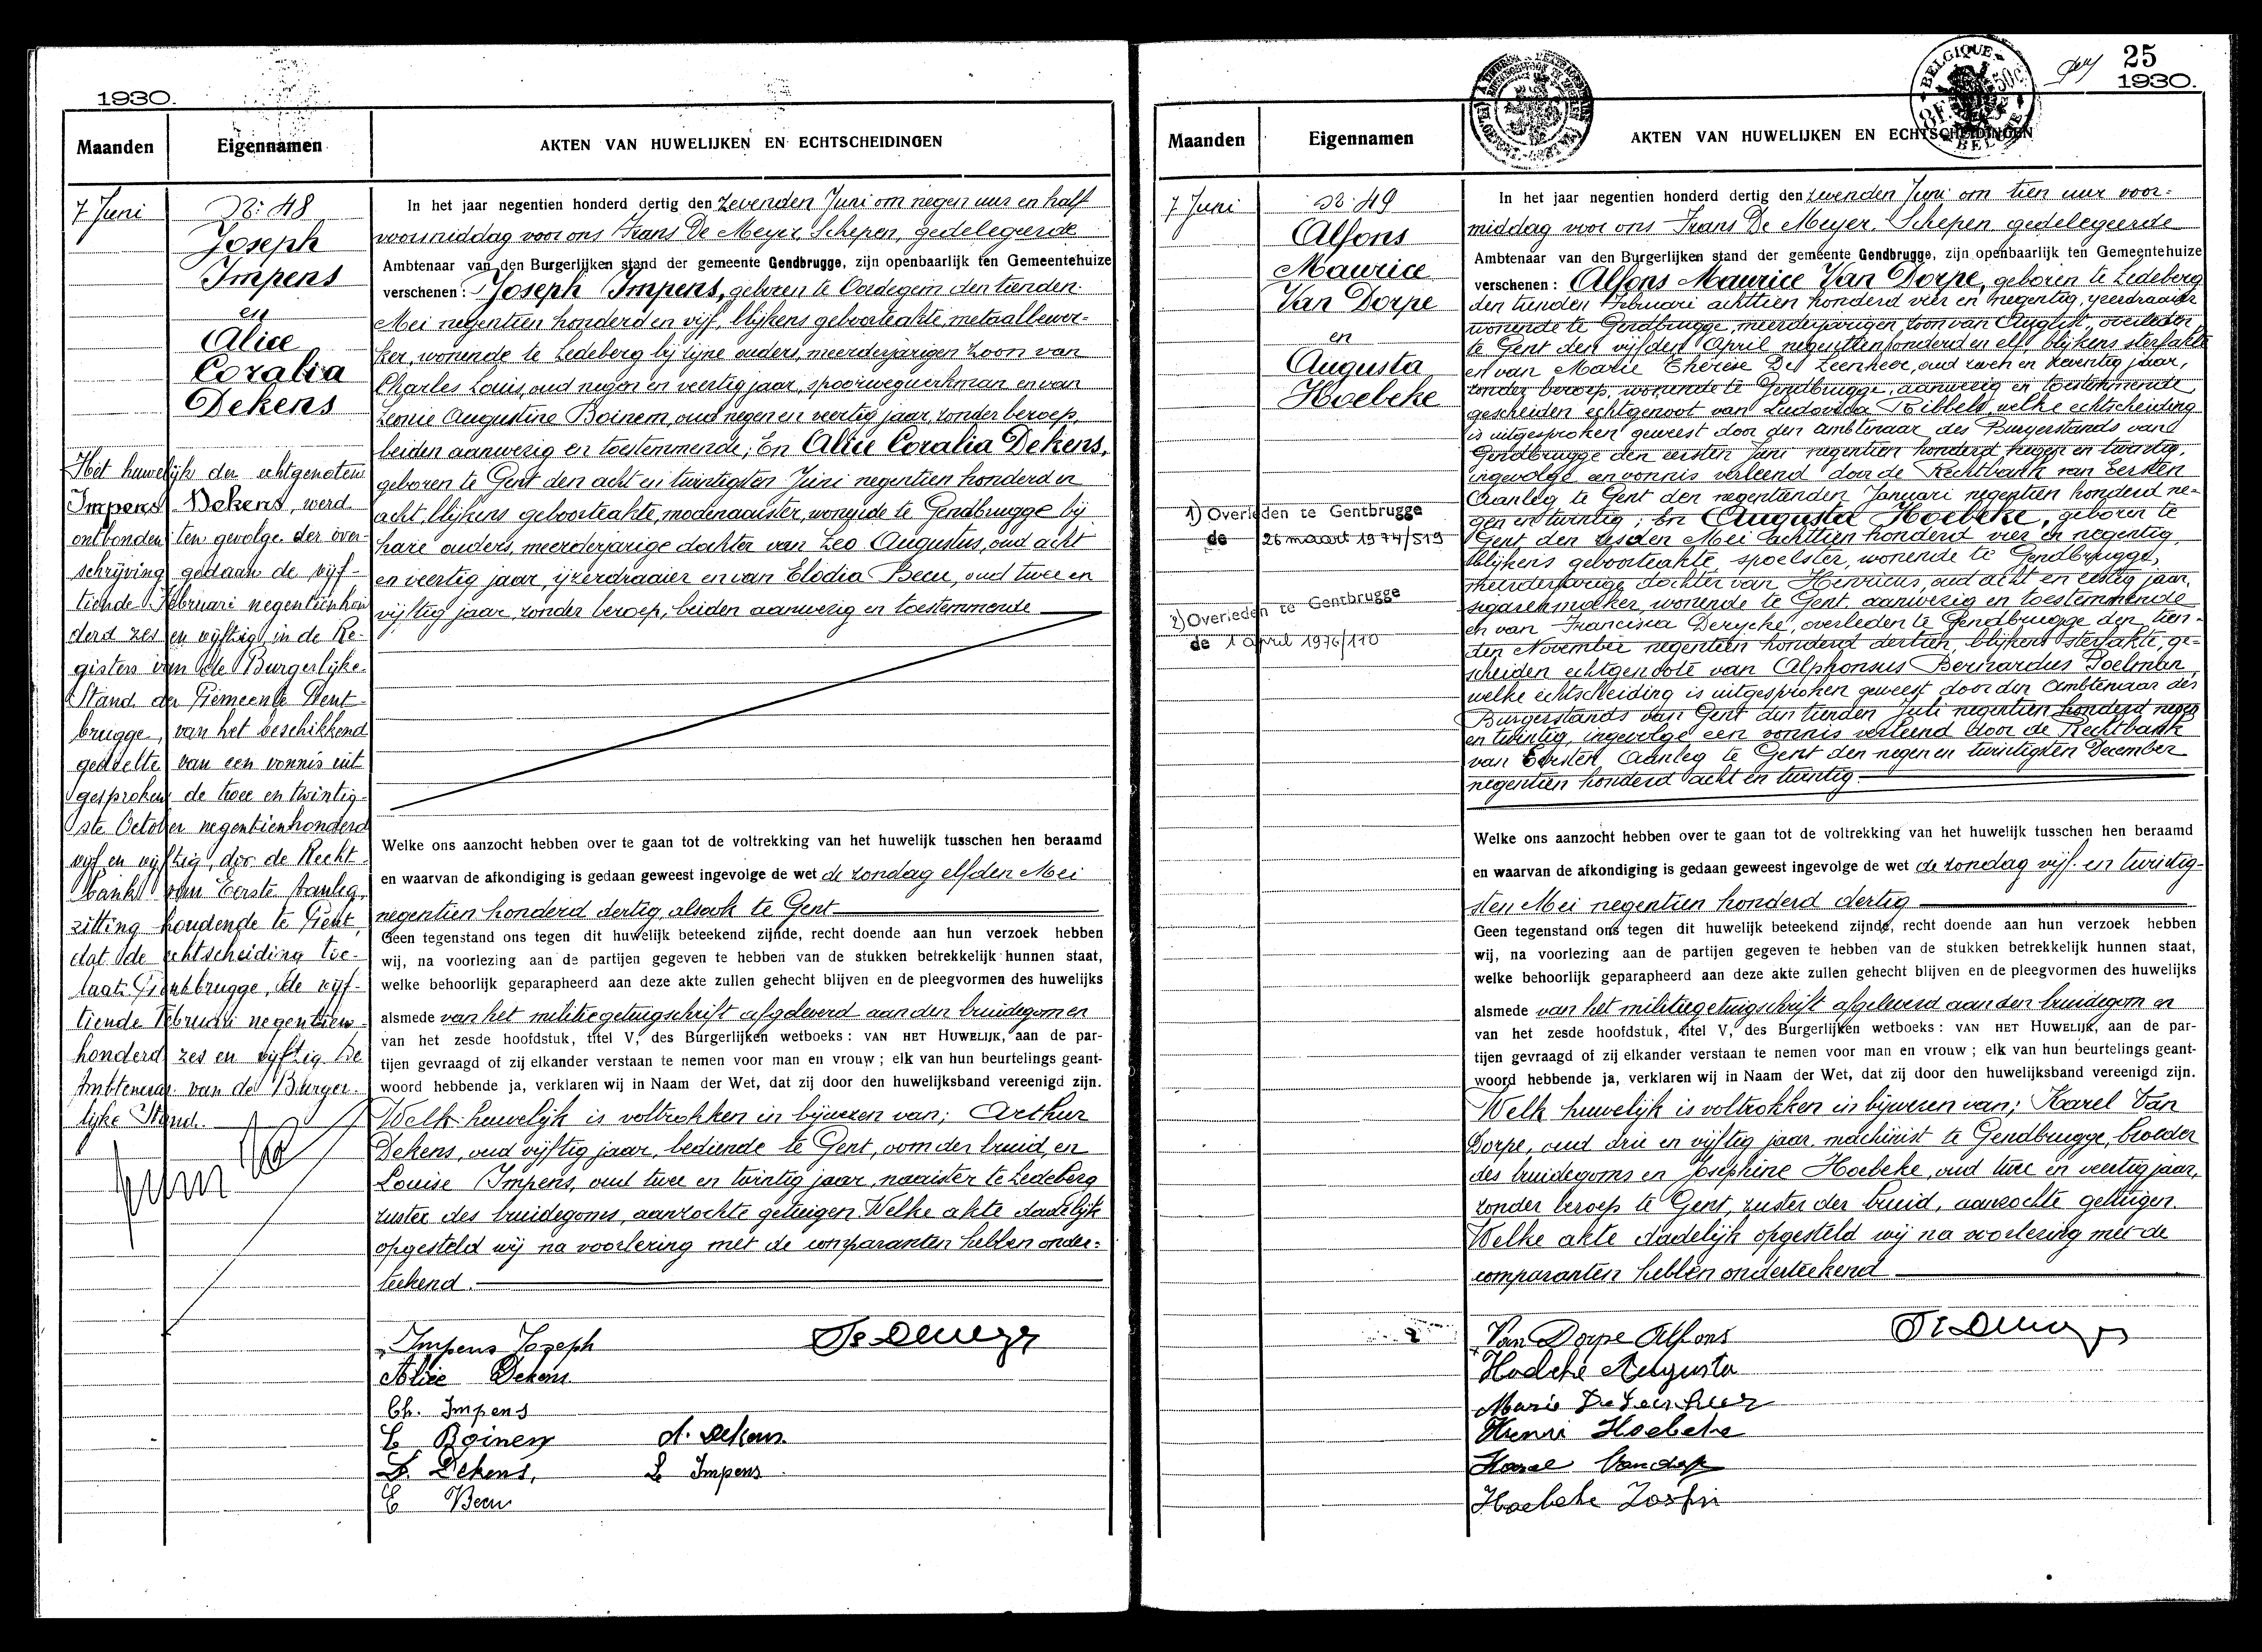 1930.
Maanden
Eigennamen
AKTEN VAN HUWELIJKEN EN ECHTSCHEIDINGEN
7 Juni
No 48
Joseph
Impens
en
Alice
Coralia
Dekens
Het huwelijk der echtgenoten
Impens Dekens, werd
ontbonden ten gevolge der over-
schrijving gedaan de vijf-
tiende Februari negentienhon
derd zes en vijftig, in de Re-
gisters van de Burgerlijke
Stand der Gemeente Gent-
brugge, van het beschikkend
gedeelte van een vonnis uit
gesproken de twee en twintig-
ste October negentienhonderd
vijf en vijftig, door de Recht-
bank van Eerste Aanleg,
zitting houdende te Gent,
dat de echtscheiding toe-
laat. Gentbrugge, de vijf-
tiende Februari negentien-
honderd zes en vijftig De
Ambtenaar van de Burger-
lijke Stand.
In het jaar negentien honderd dertig den zevenden Juni om negen uur en half
voormiddag voor ons Frans De Meyer, Schepen, gedelegeerde
Ambtenaar van den Burgerlijken stand der gemeente Gendbrugge, zijn openbaarlijk ten Gemeentehuize
verschenen: Joseph Impens, geboren te Oordegem den tienden
Mei negentien honderd en vijf, blijkens geboorteakte, metaalbewer-
ker, wonende te Ledeberg bij zijne ouders, meerderjarigen zoon van
Charles Louis, oud negen en veertig jaar, spoorwegwerkman en van
Leonie Augustine Boinem, oud negen en veertig jaar, zonder beroep,
beiden aanwezig en toestemmende; En Alice Coralia Dekens,
geboren te Gent den acht en twintigsten Juni negentien honderd en
acht, blijkens geboorteakte, modenaaister, wonende te Gendbrugge bij
hare ouders, meerderjarige dochter van Leo Augustus, oud acht
en veertig jaar, ijzerdraaier en van Elodia Becu, oud twee en
vijftig jaar, zonder beroep, beiden aanwezig en toestemmende
Welke ons aanzocht hebben over te gaan tot de voltrekking van het huwelijk tusschen hen beraamd
en waarvan de afkondiging is gedaan geweest ingevolge de wet de zondag elfden Mei
negentien honderd dertig, alsook te Gent
Geen tegenstand ons tegen dit huwelijk beteekend zijnde, recht doende aan hun verzoek hebben
wij, na voorlezing aan de partijen gegeven te hebben van de stukken betrekkelijk hunnen staat,
welke behoorlijk geparapheerd aan deze akte zullen gehecht blijven en de pleegvormen des huwelijks
alsmede van het militiegetuigschrift afgeleverd aan den bruidegom en
van het zesde hoofdstuk, titel V, des Burgerlijken wetboeks: VAN HET HUWELIJK, aan de par-
tijen gevraagd of zij elkander verstaan te nemen voor man en vrouw; elk van hun beurtelings geant-
woord hebbende ja, verklaren wij in Naam der Wet, dat zij door den huwelijksband vereenigd zijn.
Welk huwelijk is voltrokken in bijwezen van; Arthur
Dekens, oud vijftig jaar, bediende te Gent, oom der bruid, en
Louise Impens, oud twee en twintig jaar, naaister te Ledeberg
zuster des bruidegoms, aanzochte getuigen. Welke akte dadelijk
opgesteld wij na voorlezing met de comparanten hebben onder-
teekend.
Impens Jozeph
Alice Dekens
Ch. Impens
L Boinem
A. Dekens
L. Dekens,
L Impens
E Becu
25
1930.
BELGIQUE
BELGIE
Maanden
Eigennamen
AKTEN VAN HUWELIJKEN EN ECHTSCHEIDINGEN
7 Juni
No 49
Alfons
Maurice
Van Dorpe
en
Augusta
Hoebeke
1) Overleden te Gentbrugge
de 26 maart 1974/519
2) Overleden te Gentbrugge
de 1 april 1976/110
In het jaar negentien honderd dertig den zevenden Juni om tien uur voor-
middag voor ons Frans De Meyer, Schepen gedelegeerde
Ambtenaar van den Burgerlijken stand der gemeente Gendbrugge, zijn openbaarlijk ten Gemeentehuize
verschenen: Alfons Maurice Van Dorpe, geboren te Ledeberg
den tienden Februari achttien honderd vier en negentig, ijzerdraaier
wonende te Gendbrugge, meerderjarigen zoon van August, overleden
te Gent den vijfden April negentien honderd en elf blijkens sterfakte
en van Marie Thérèse De Leenheer, oud zeven en zeventig jaar,
zonder beroep, wonende te Gendbrugge, aanwezig en toestemmende
gescheiden echtgenoot van Ludovika Ribbels, welke echtscheiding
is uitgesproken geweest door den ambtenaar des Burgerstands van
Gendbrugge den eersten Juni negentien honderd negen en twintig,
ingevolge een vonnis verleend door de Rechtbank van Eersten
Aanleg te Gent den negentienden Januari negentien honderd ne-
gen en twintig; En Augusta Hoebeke, geboren te
Gent den zesden Mei achttien honderd vier en negentig,
blijkens geboorteakte, spoelster, wonende te Gendbrugge,
meerderjarige dochter van Henricus, oud acht en zestig jaar,
sigarenmaker, wonende te Gent, aanwezig en toestemmende
en van Francisca Derycke, overleden te Gendbrugge den tien-
den November negentien honderd dertien, blijkens sterfakte, ge-
scheiden echtgenoote van Alphonsus Bernardus Poelman
welke echtscheiding is uitgesproken geweest door den Ambtenaar des
Burgerstands van Gent den tienden Juli negentien honderd negen
en twintig, ingevolge een vonnis verleend door de Rechtbank
van Eersten Aanleg te Gent den negen en twintigsten December
negentien honderd acht en twintig
Welke ons aanzocht hebben over te gaan tot de voltrekking van het huwelijk tusschen hen beraamd
en waarvan de afkondiging is gedaan geweest ingevolge de wet de zondag vijf en twintig-
sten Mei negentien honderd dertig
Geen tegenstand ons tegen dit huwelijk beteekend zijnde, recht doende aan hun verzoek hebben
wij, na voorlezing aan de partijen gegeven te hebben van de stukken betrekkelijk hunnen staat,
welke behoorlijk geparapheerd aan deze akte zullen gehecht blijven en de pleegvormen des huwelijks
alsmede van het militiegetuigschrift afgeleverd aan den bruidegom en
van het zesde hoofdstuk, titel V, des Burgerlijken wetboeks: VAN HET HUWELIJK, aan de par-
tijen gevraagd of zij elkander verstaan te nemen voor man en vrouw; elk van hun beurtelings geant-
woord hebbende ja, verklaren wij in Naam der Wet, dat zij door den huwelijksband vereenigd zijn.
Welk huwelijk is voltrokken in bijwezen van; Karel Van
Dorpe, oud drie en vijftig jaar, machinist te Gendbrugge, broeder
des bruidegoms en Josephine Hoebeke, oud twee en veertig jaar,
zonder beroep te Gent, zuster der bruid, aanzochte getuigen.
Welke akte dadelijk opgesteld wij na voorlezing met de
comparanten hebben onderteekend
Van Dorpe Alfons
Hoebeke Augusta
Marie De Leenheer
Henri Hoebeke
Karel
Hoebeke